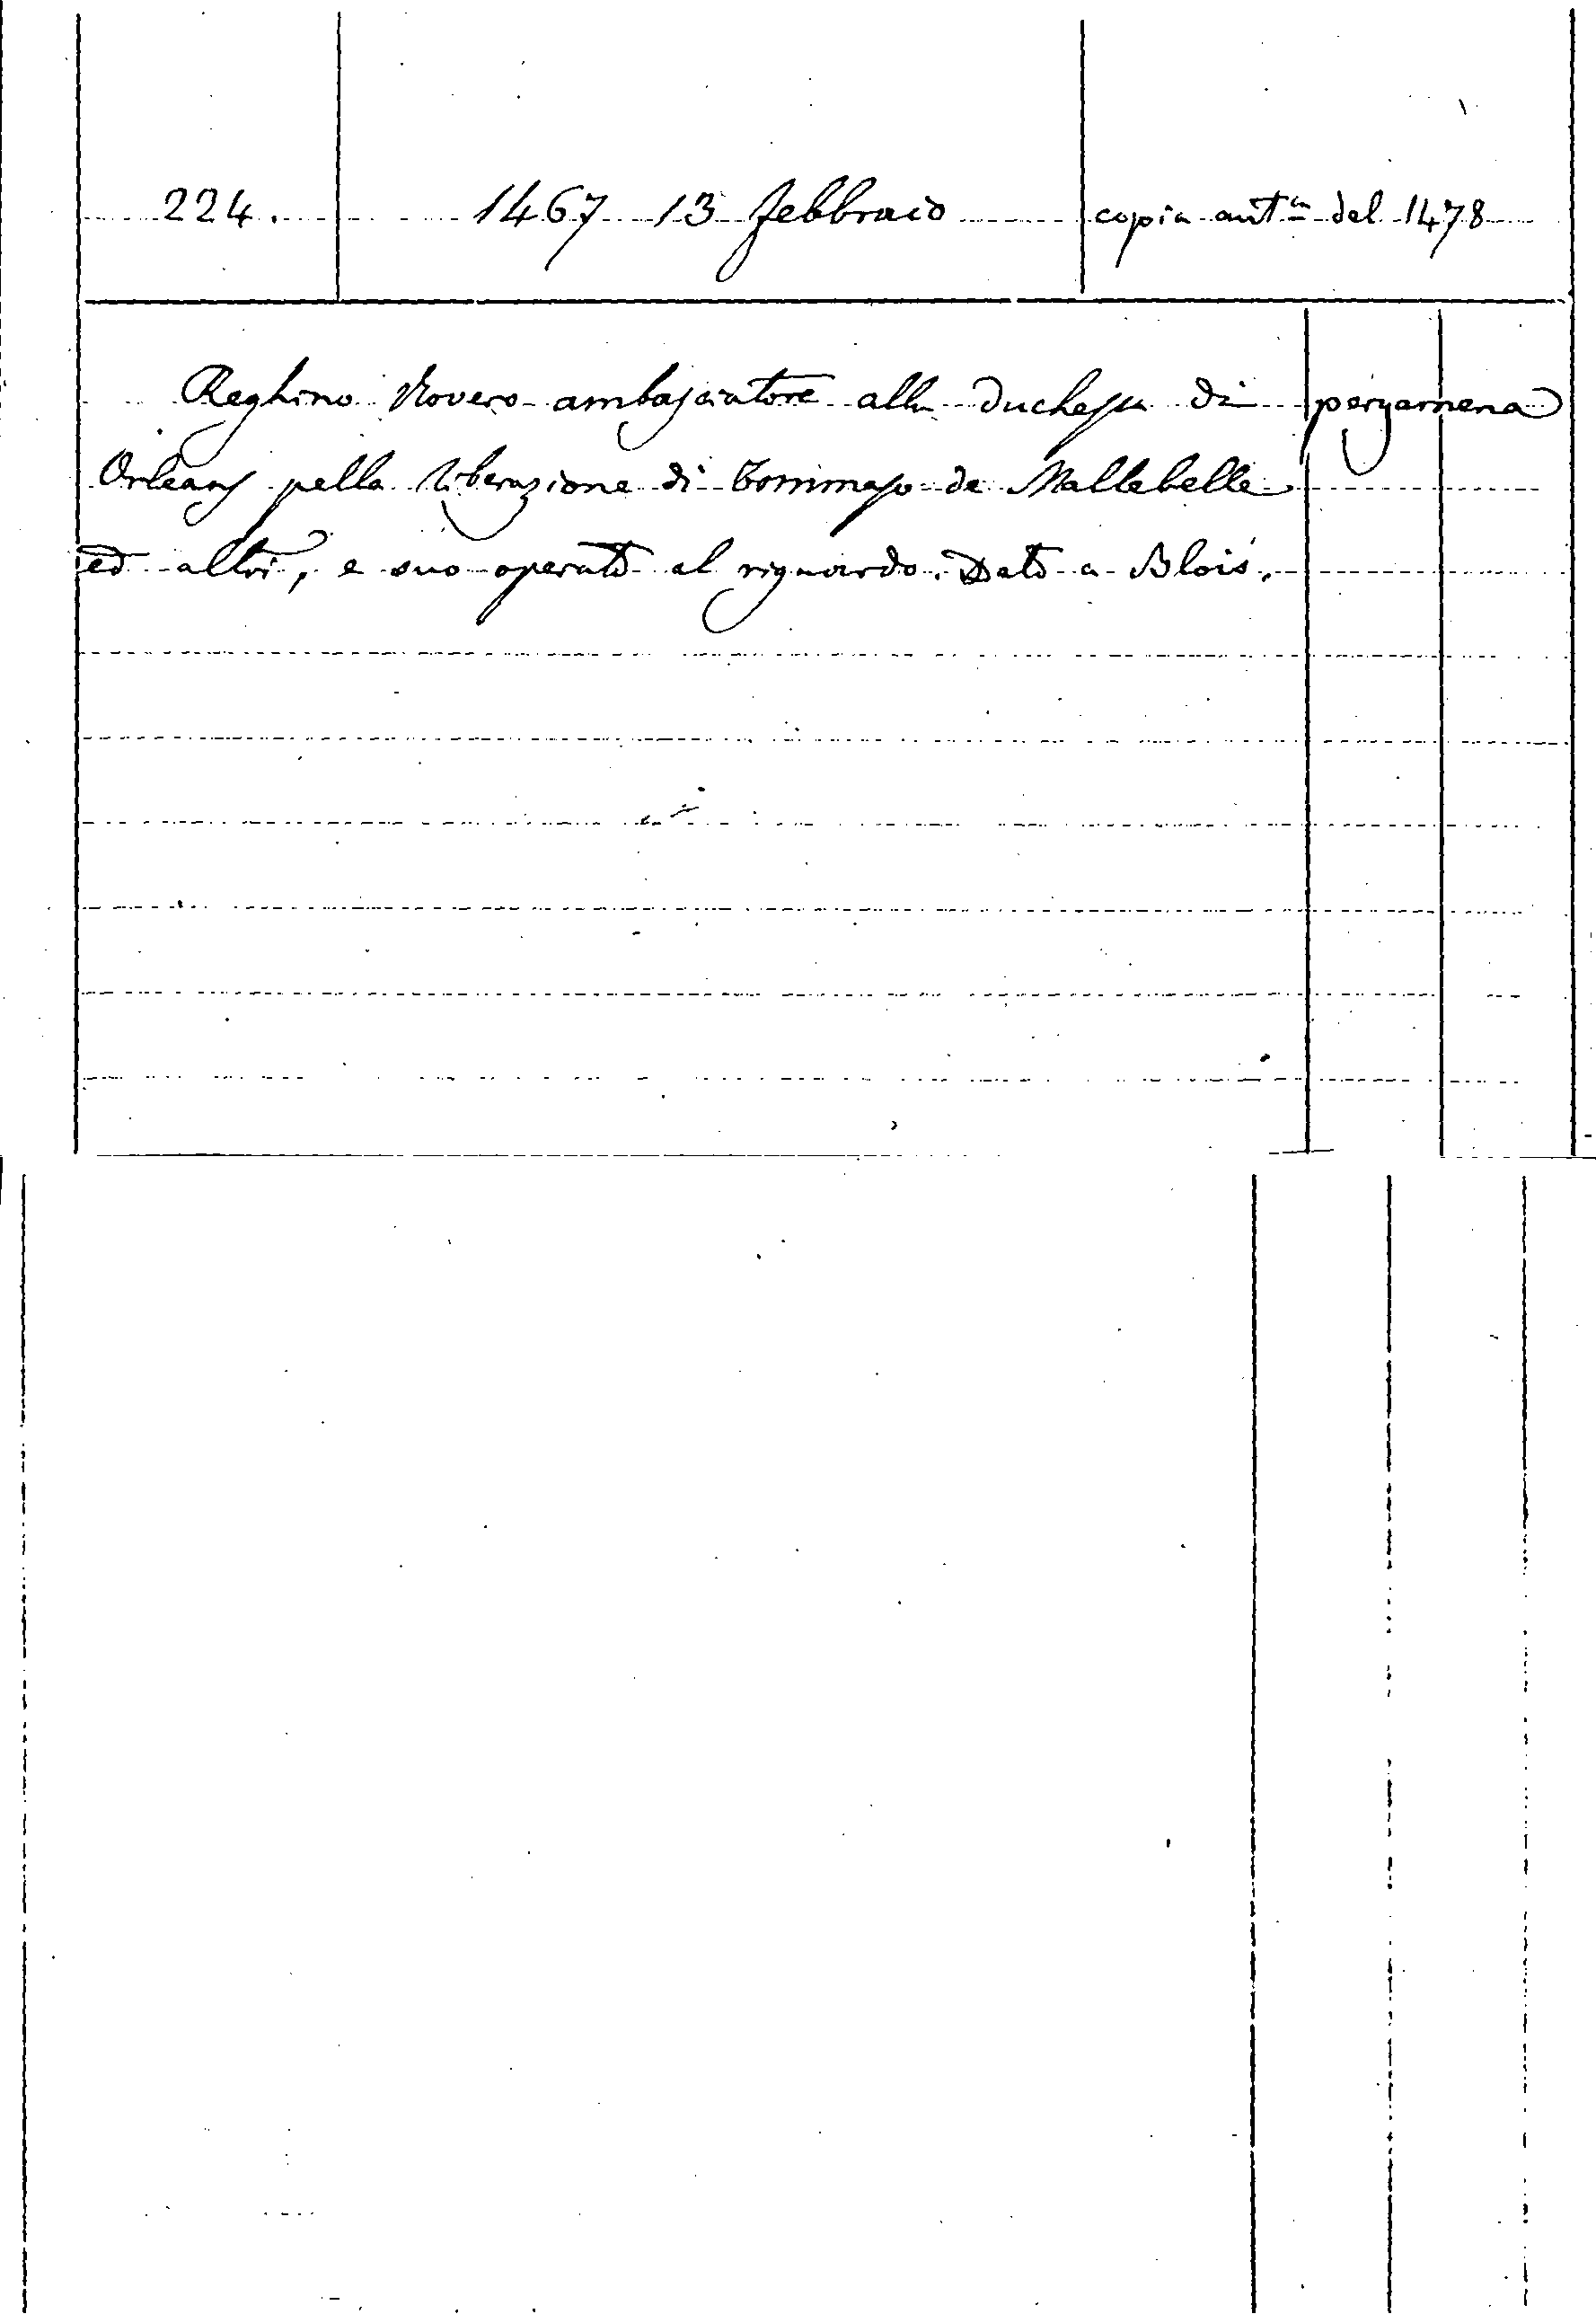 224. 1467 13 febbraio copia aut.ca del 1478
Reghino Rovero ambasciatore alla duchessa di pergamena
Orleans pella liberazione di Tommaso de Mallebelle
ed altri, e suo operato al riguardo. Dato a Blois.